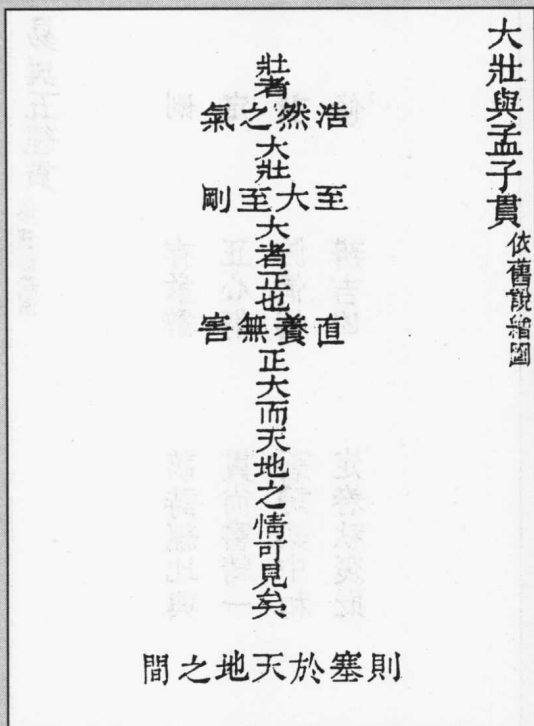 大壯與孟子貫
依舊說繪圖
壯者
浩然之氣
大壯
至大至剛
大者正也
直養無害
正大而天地之情可見矣
則塞於天地之間